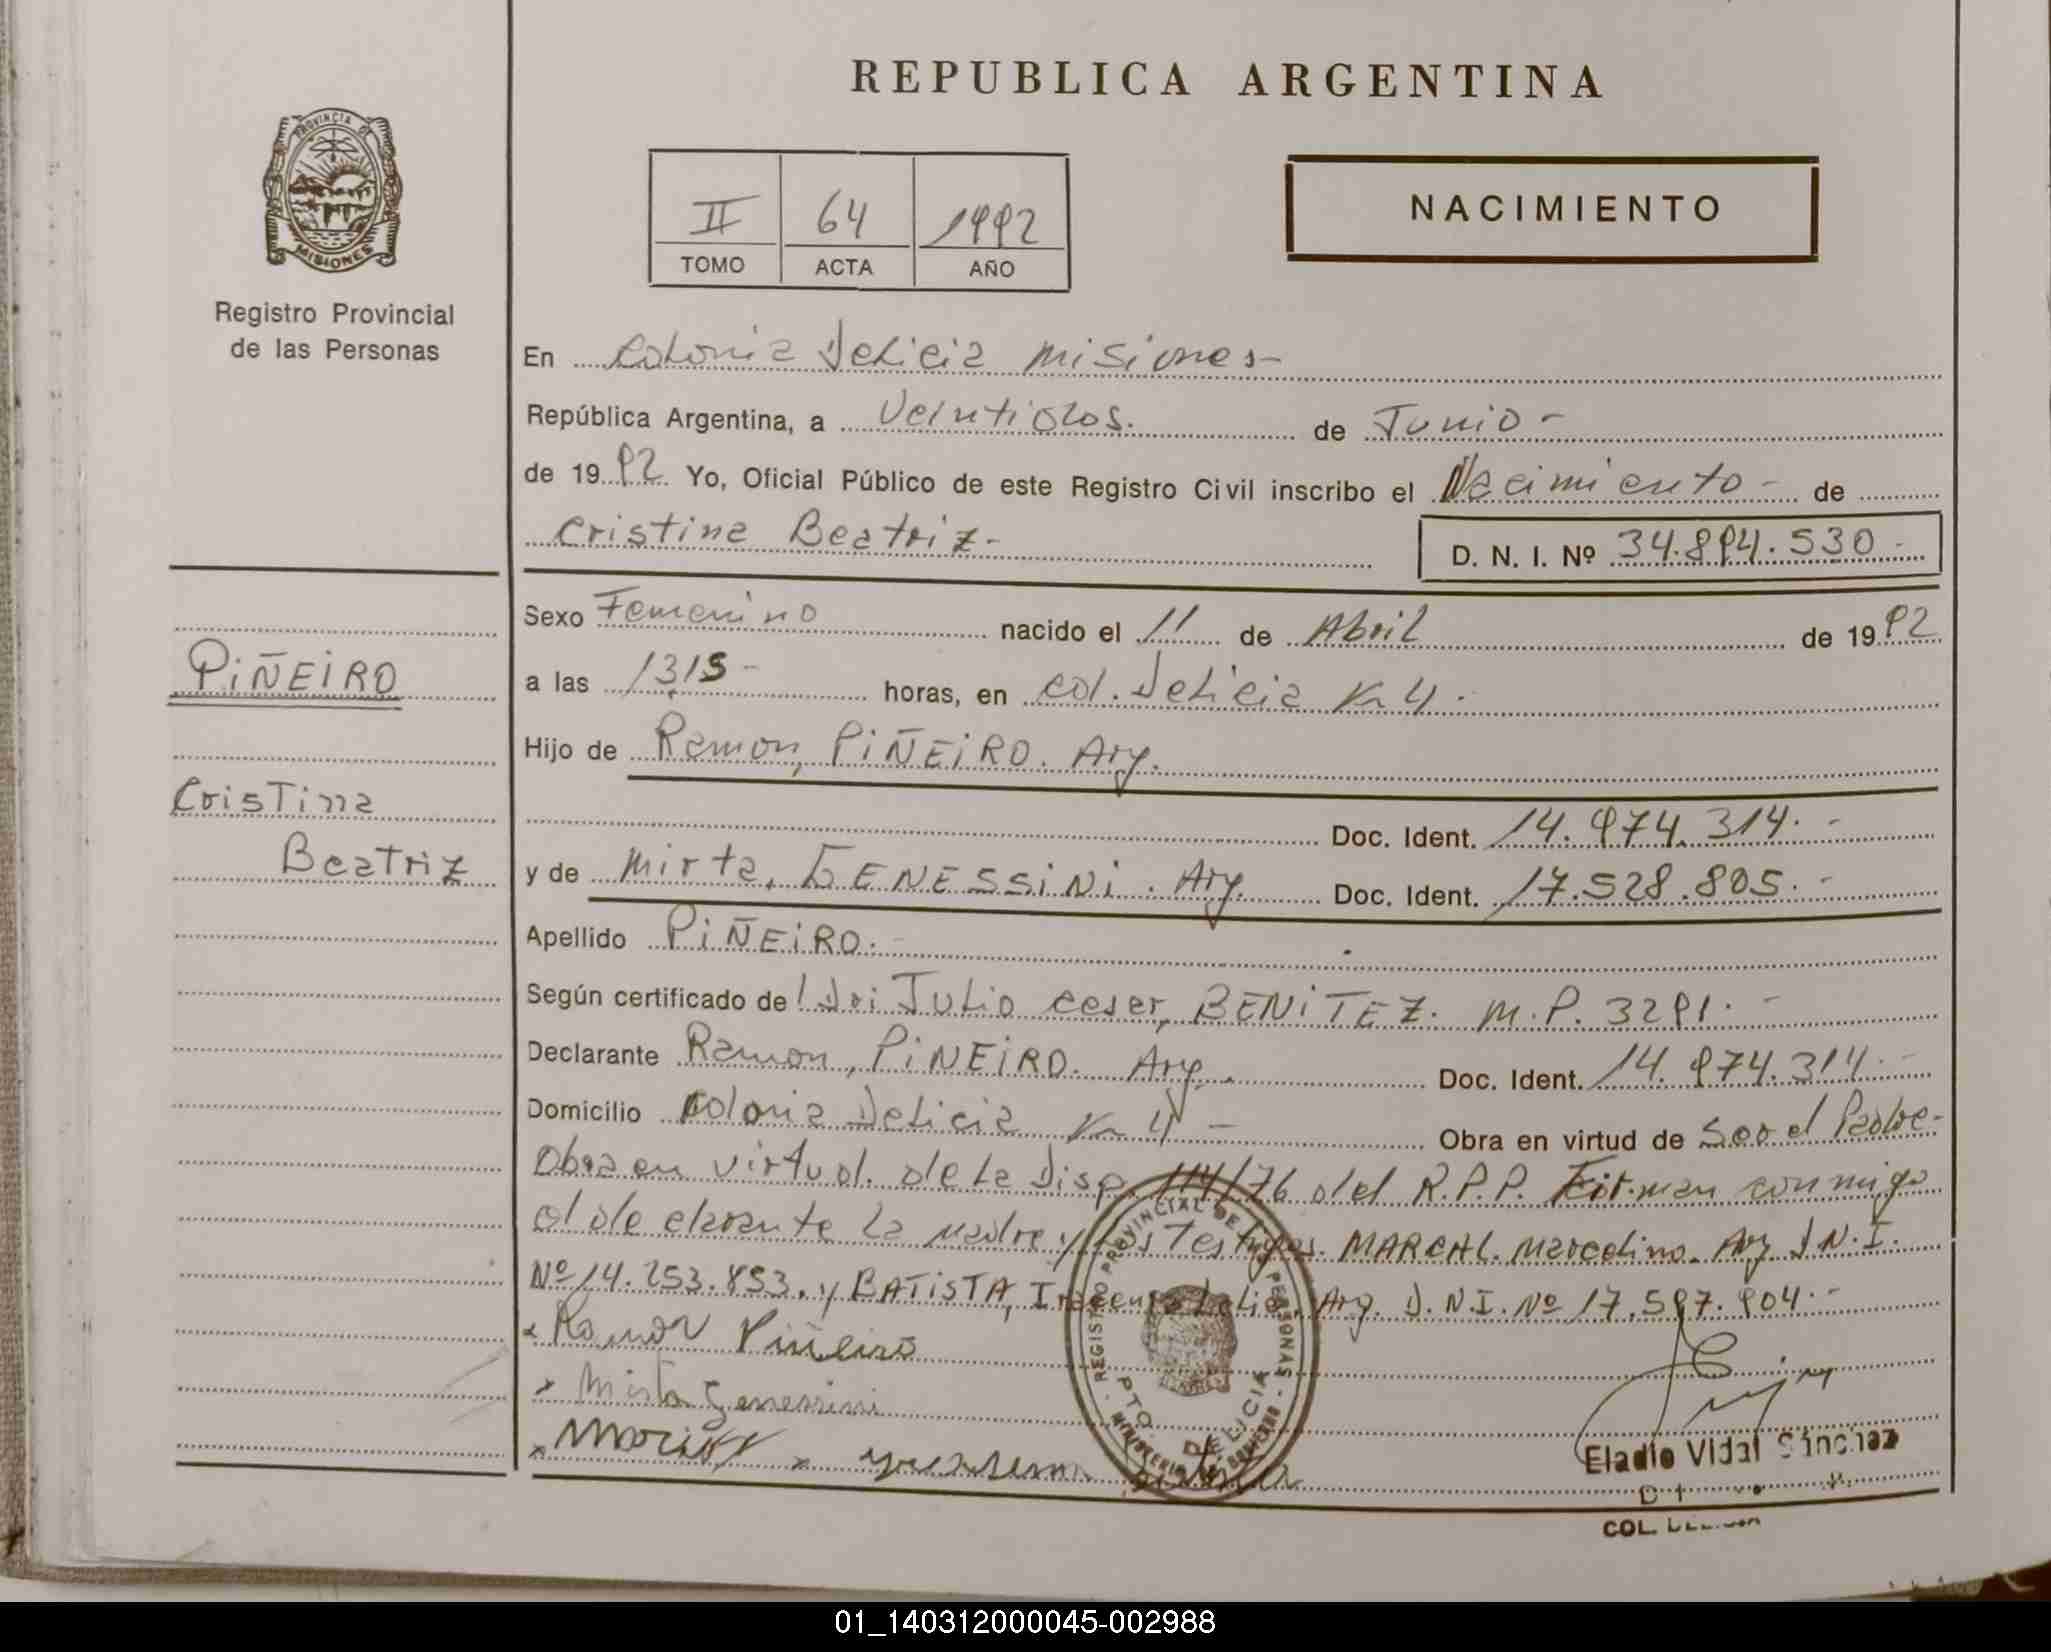 REPUBLICA ARGENTINA
PROVINCIA DE
MISIONES
Registro Provincial
de las Personas
II 64 1992
TOMO ACTA AÑO
NACIMIENTO
En Colonia Delicia Misiones-
República Argentina, a Veintidos. de Junio-
de 1992 Yo, Oficial Público de este Registro Civil inscribo el Nacimiento- de
Cristina Beatriz- D. N. I. Nº 34.894.530-
PIÑEIRO
Cristina
Beatriz
Sexo Femenino nacido el 11 de Abril de 1992
a las 1315- horas, en Col. Delicia Km 4.
Hijo de Ramon, PIÑEIRO. Arg.
Doc. Ident. 14.974.314.-
y de Mirta, GENESSINI. Arg. Doc. Ident. 17.528.805.-
Apellido PIÑEIRO.-
Según certificado de Julio Cesar, BENITEZ. M.P. 3291.-
Declarante Ramon, PIÑEIRO. Arg. Doc. Ident. 14.974.314.-
Domicilio Colonia Delicia Km 4- Obra en virtud de ser el Padre-
Obra en virtud de la Disp. 114/76 del R.P.P. Firman conmigo
el declarante la madre y los Testigos. MARCAL. Marcelino. Arg. D.N.I.
Nº 14.253.853. y BATISTA, Arg. D.N.I. Nº 17.597.904.-
x Ramon Piñeiro
x Mirta Genessini
REGISTRO PROVINCIAL DE LAS PERSONAS
PTO. DELICIA
MINISTERIO DE GOBIERNO
Eladio Vidal Sánchez
COL.
01_140312000045-002988